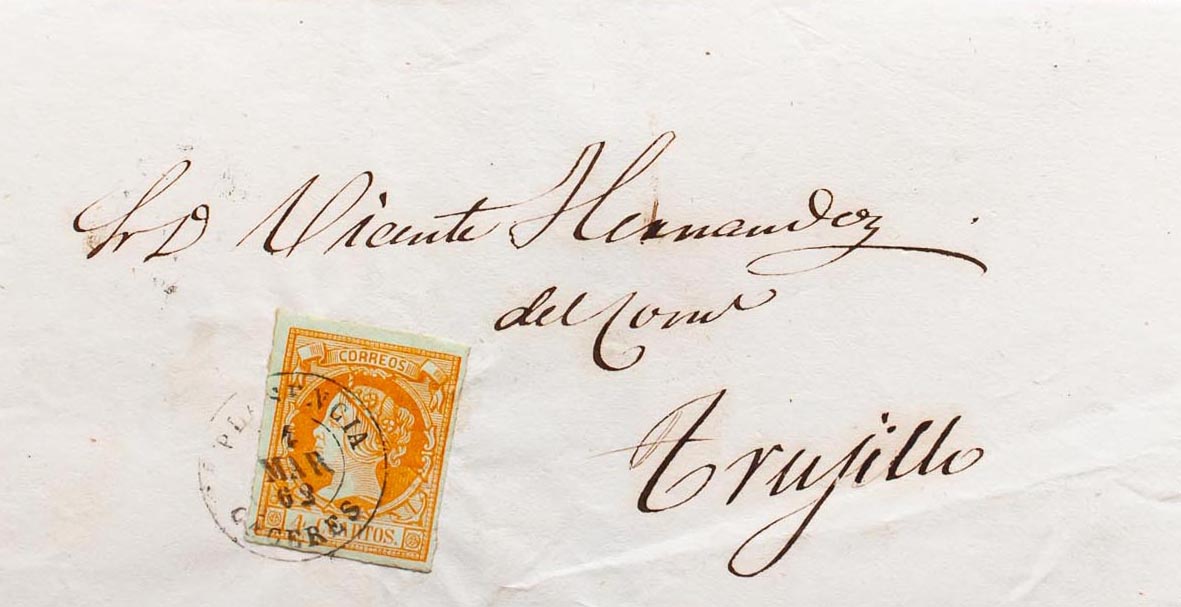 Sr D Vicente Hernandez
del Comº
Trujillo
CORREOS
PLASENCIA
MAR
62
CACERES
4 CUARTOS.